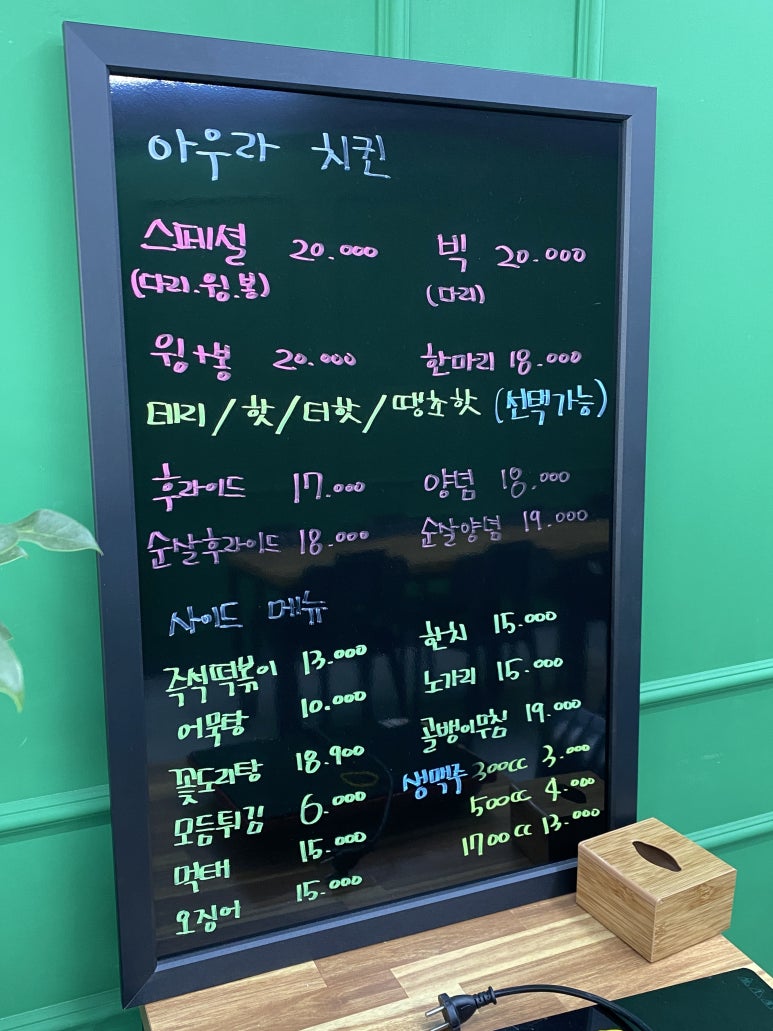 아우라 치킨
스페셜 20.000 빅 20.000
(다리.윙.봉) (다리)
윙+봉 20.000 한마리 18.000
데리/핫/더핫/땡초핫 (선택가능)
후라이드 17.000 양념 18.000
순살후라이드 18.000 순살양념 19.000
사이드 메뉴
즉석떡볶이 13.000 한치 15.000
어묵탕 10.000 노가리 15.000
꽃도리탕 18.900 골뱅이무침 19.000
모듬튀김 6.000 생맥주 300cc 3.000
먹태 15.000 500cc 4.000
오징어 15.000 1700cc 13.000